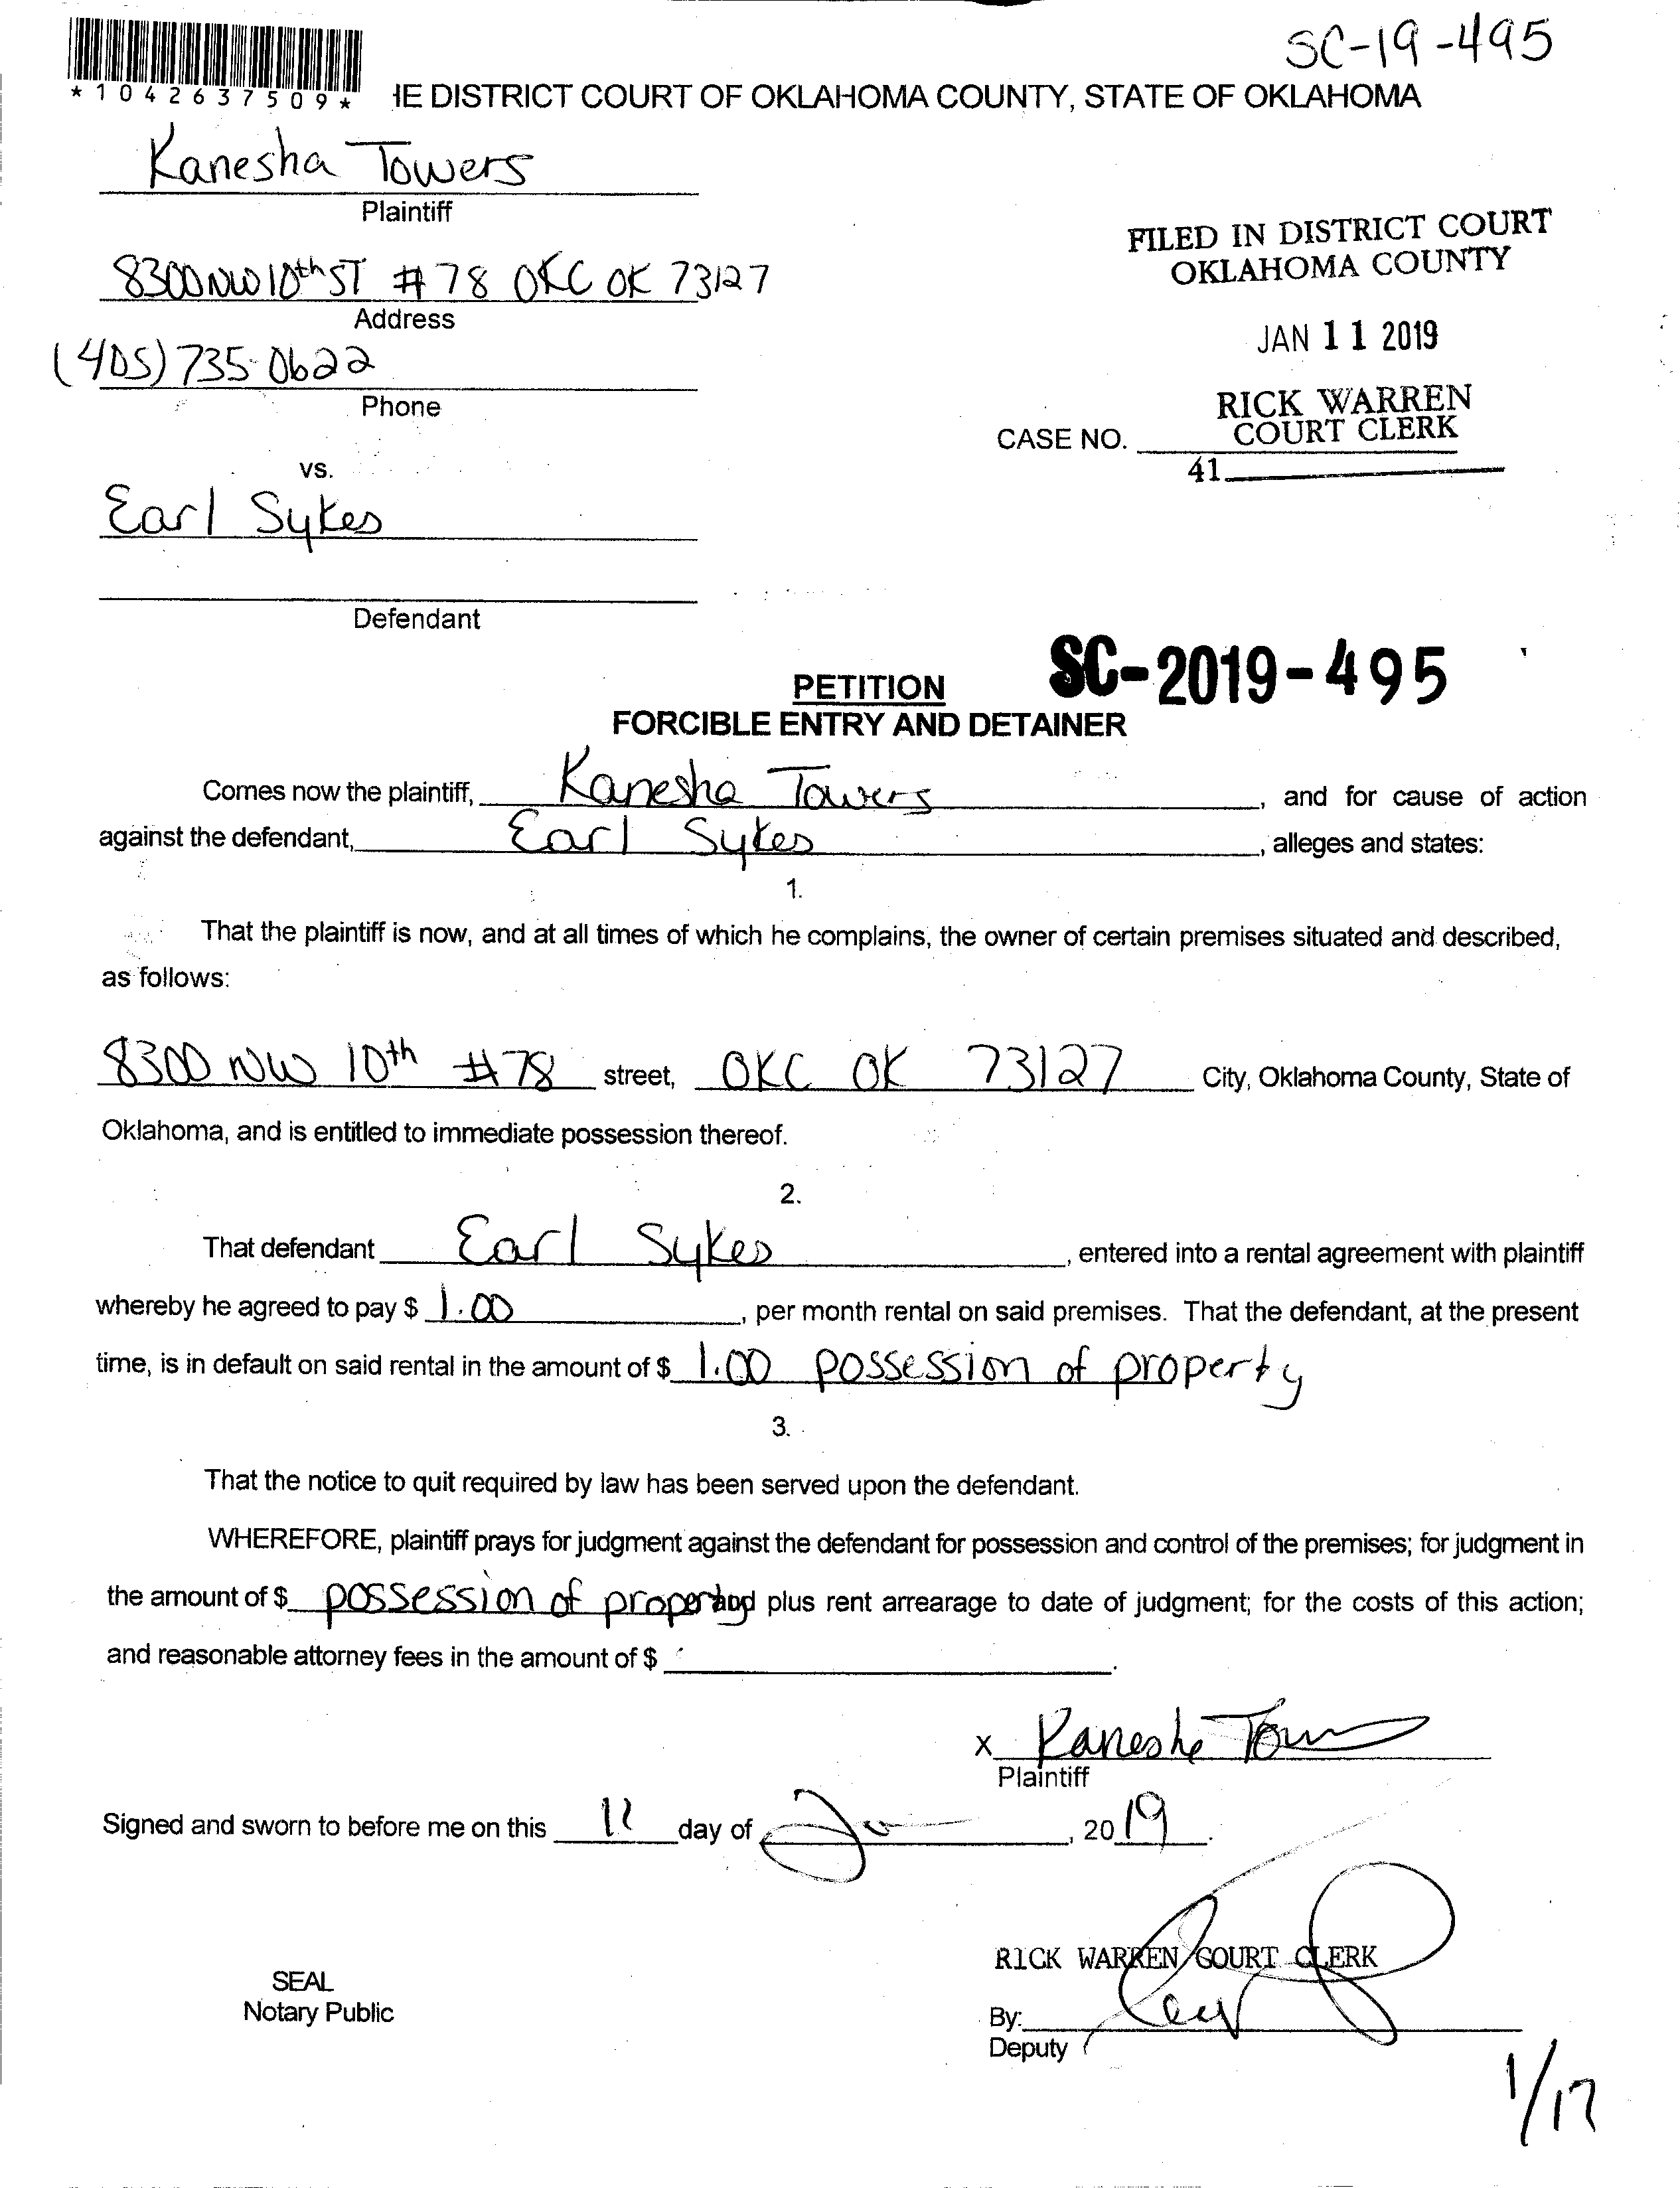 SC-19-495
*1042637509*
HE DISTRICT COURT OF OKLAHOMA COUNTY, STATE OF OKLAHOMA
Kanesha Towers
Plaintiff
8300 NW 10th ST #78 OKC OK 73127
Address
(405) 735-0622
Phone
vs.
Earl Sykes
Defendant
FILED IN DISTRICT COURT
OKLAHOMA COUNTY
JAN 11 2019
RICK WARREN
COURT CLERK
CASE NO.
41
SC-2019-495
PETITION
FORCIBLE ENTRY AND DETAINER
Comes now the plaintiff, Kanesha Towers, and for cause of action
against the defendant, Earl Sykes, alleges and states:
1.
That the plaintiff is now, and at all times of which he complains, the owner of certain premises situated and described,
as follows:
8300 NW 10th #78 street, OKC OK 73127 City, Oklahoma County, State of
Oklahoma, and is entitled to immediate possession thereof.
2.
That defendant Earl Sykes, entered into a rental agreement with plaintiff
whereby he agreed to pay $ 1.00, per month rental on said premises. That the defendant, at the present
time, is in default on said rental in the amount of $ 1.00 possession of property
3.
That the notice to quit required by law has been served upon the defendant.
WHEREFORE, plaintiff prays for judgment against the defendant for possession and control of the premises; for judgment in
the amount of $ possession of property and plus rent arrearage to date of judgment; for the costs of this action;
and reasonable attorney fees in the amount of $ .
X Kanesha Towers
Plaintiff
Signed and sworn to before me on this 11 day of Jan, 2019.
RICK WARREN COURT CLERK
SEAL
Notary Public
By:
Deputy
1/17